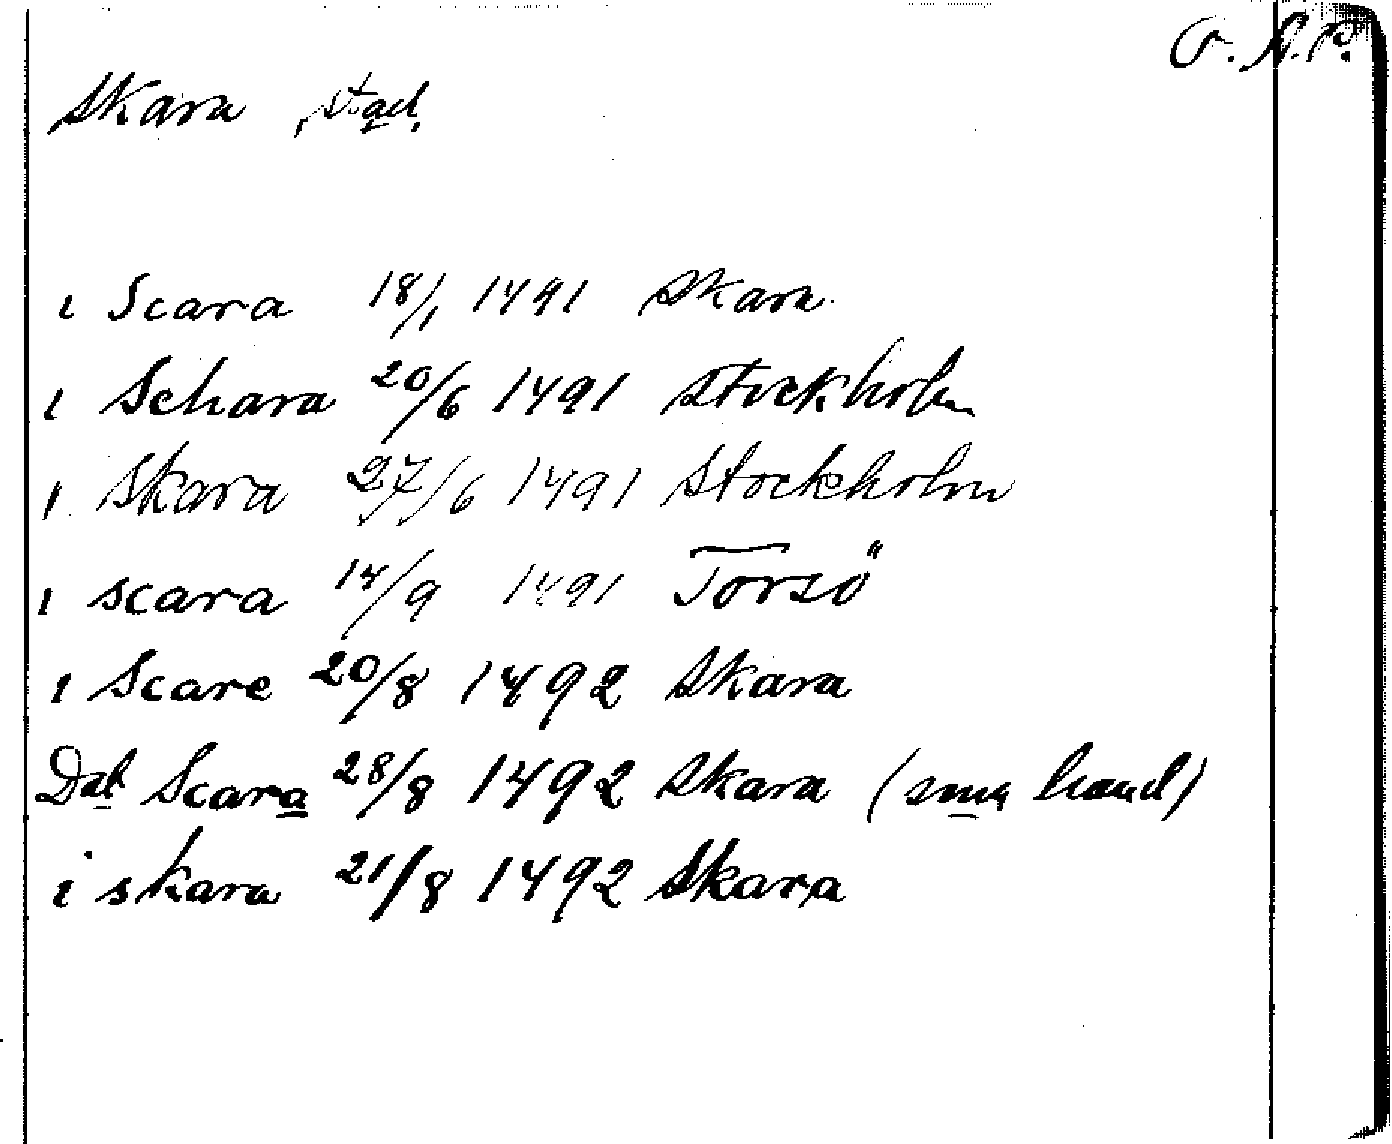 O.A.P.
Skara stad.
i Scara 18/1 1491 Skara
i Schara 20/6 1491 Stockholm
i Skara 27/6 1491 Stockholm
i scara 14/9 1491 Torsö
i Scare 20/8 1492 Skara
Dat Scara 28/8 1492 Skara (sma hand)
i skara 21/8 1492 Skara